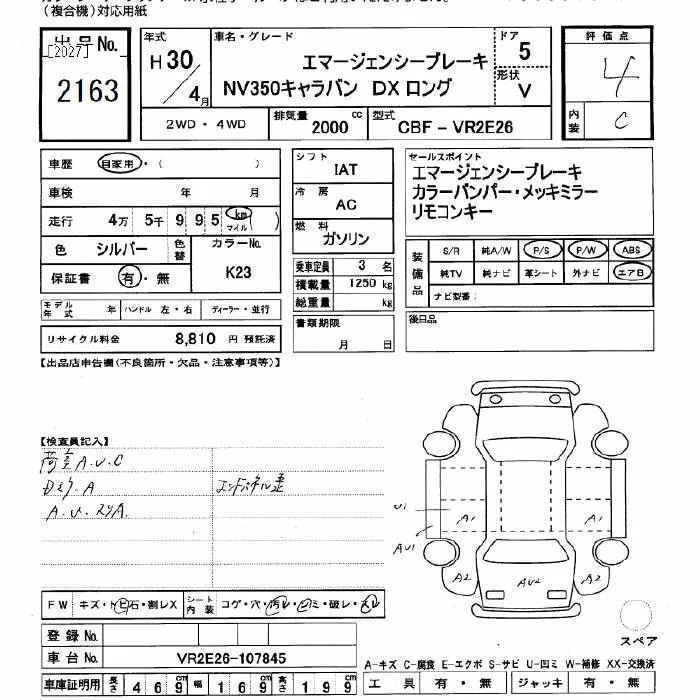 (複合機)対応用紙
出品No.
[2027]
2163
年式
H30/4月
車名・グレード
エマージェンシーブレーキ
NV350キャラバン DX ロング
ドア 5
形状 V
2WD・4WD
排気量 2000 cc
型式 CBF-VR2E26
評価点
4
内装 C
車歴 自家用・( )
車検 年 月
走行 4万 5千 9 9 5 km マイル ( )
色 シルバー 色替
カラーNo. K23
保証書 有・無
モデル年式 年 ハンドル 左・右 ディーラー・並行
リサイクル料金 8,810 円 預託済
シフト IAT
冷房 AC
燃料 ガソリン
乗車定員 3 名
積載量 1250 kg
総重量 kg
書類期限
月 日
セールスポイント
エマージェンシーブレーキ
カラーバンパー・メッキミラー
リモコンキー
装備品
S/R 純A/W P/S P/W ABS
純TV 純ナビ 革シート 外ナビ エアB
ナビ型番:
後日品
【出品店申告欄(不良箇所・欠品・注意事項等)】
【検査員記入】
荷室A.U.C
A
A.U.
U1
AU1
A1
A1
A2
AU2
A2
FW キズ・トビ石・割レX
シート内装 コゲ・穴・汚レ・凹ミ・破レ・スレ
登録No.
車台No. VR2E26-107845
車庫証明用 長さ 469cm 幅 169cm 高さ 199cm
スペア
A-キズ C-腐食 E-エクボ S-サビ U-凹ミ W-補修 XX-交換済
工具 有・無 ジャッキ 有・無